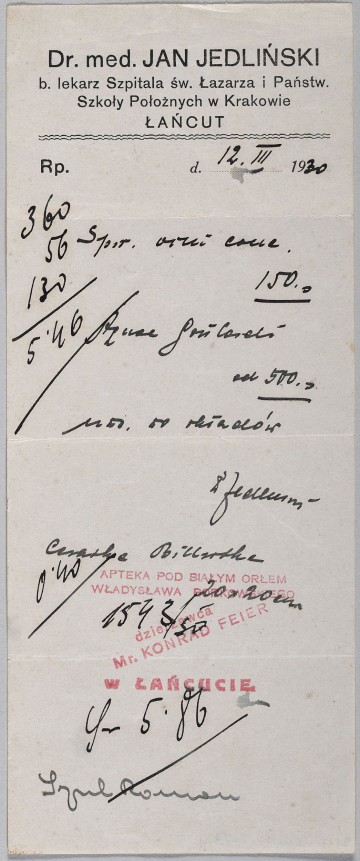 Dr. med. JAN JEDLIŃSKI
b. lekarz Szpitala św. Łazarza i Państw.
Szkoły Położnych w Krakowie
ŁAŃCUT
Rp. d. 12. III 1930
360
56 Spir. vini conc.
130 150.0
5·46
ad 500.0
okładów
0·40
APTEKA POD BIAŁYM ORŁEM
WŁADYSŁAWA
1543/30
dzierżawca
Mr. KONRAD FEIER
W ŁAŃCUCIE
5·86
Szul Roman